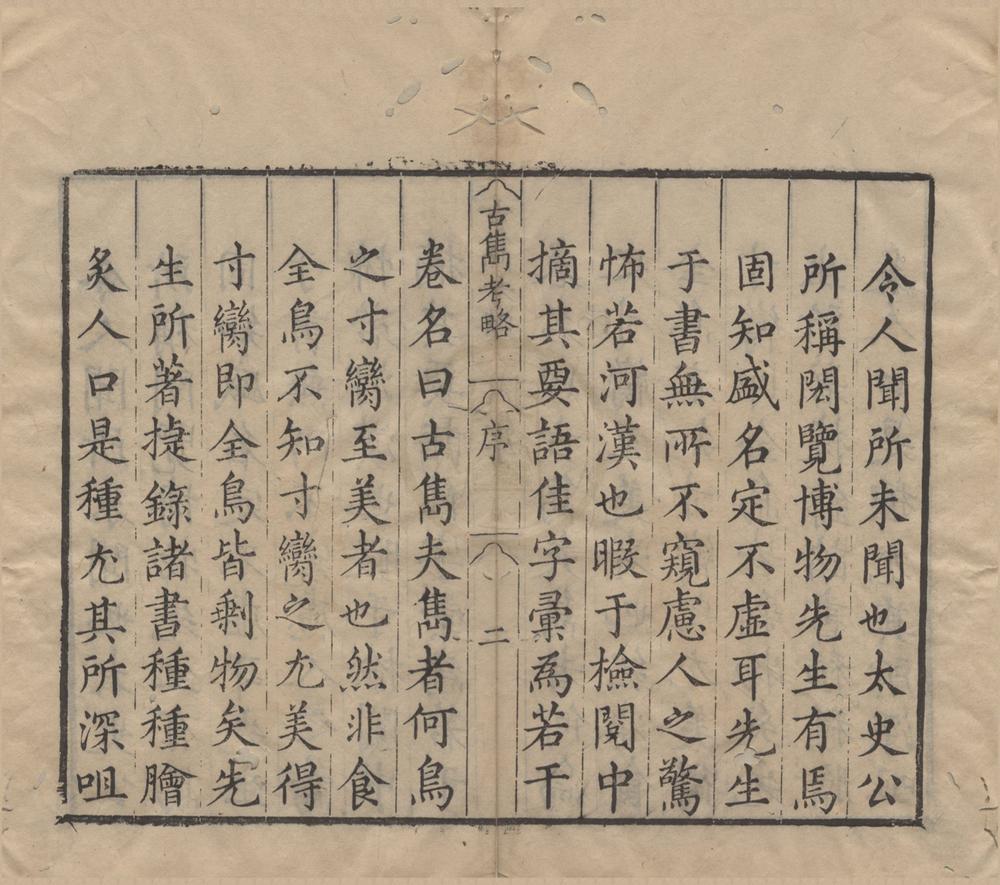 令人聞所未聞也太史公
所稱閎覽博物先生有焉
固知盛名定不虛耳先生
于書無所不窺慮人之驚
怖若河漢也暇于檢閱中
摘其要語佳字彙為若干
古雋考略 序 二
卷名曰古雋夫雋者何鳥
之寸臠至美者也然非食
全鳥不知寸臠之尤美得
寸臠即全鳥皆剩物矣先
生所著捷錄諸書種種膾
炙人口是種尤其所深咀